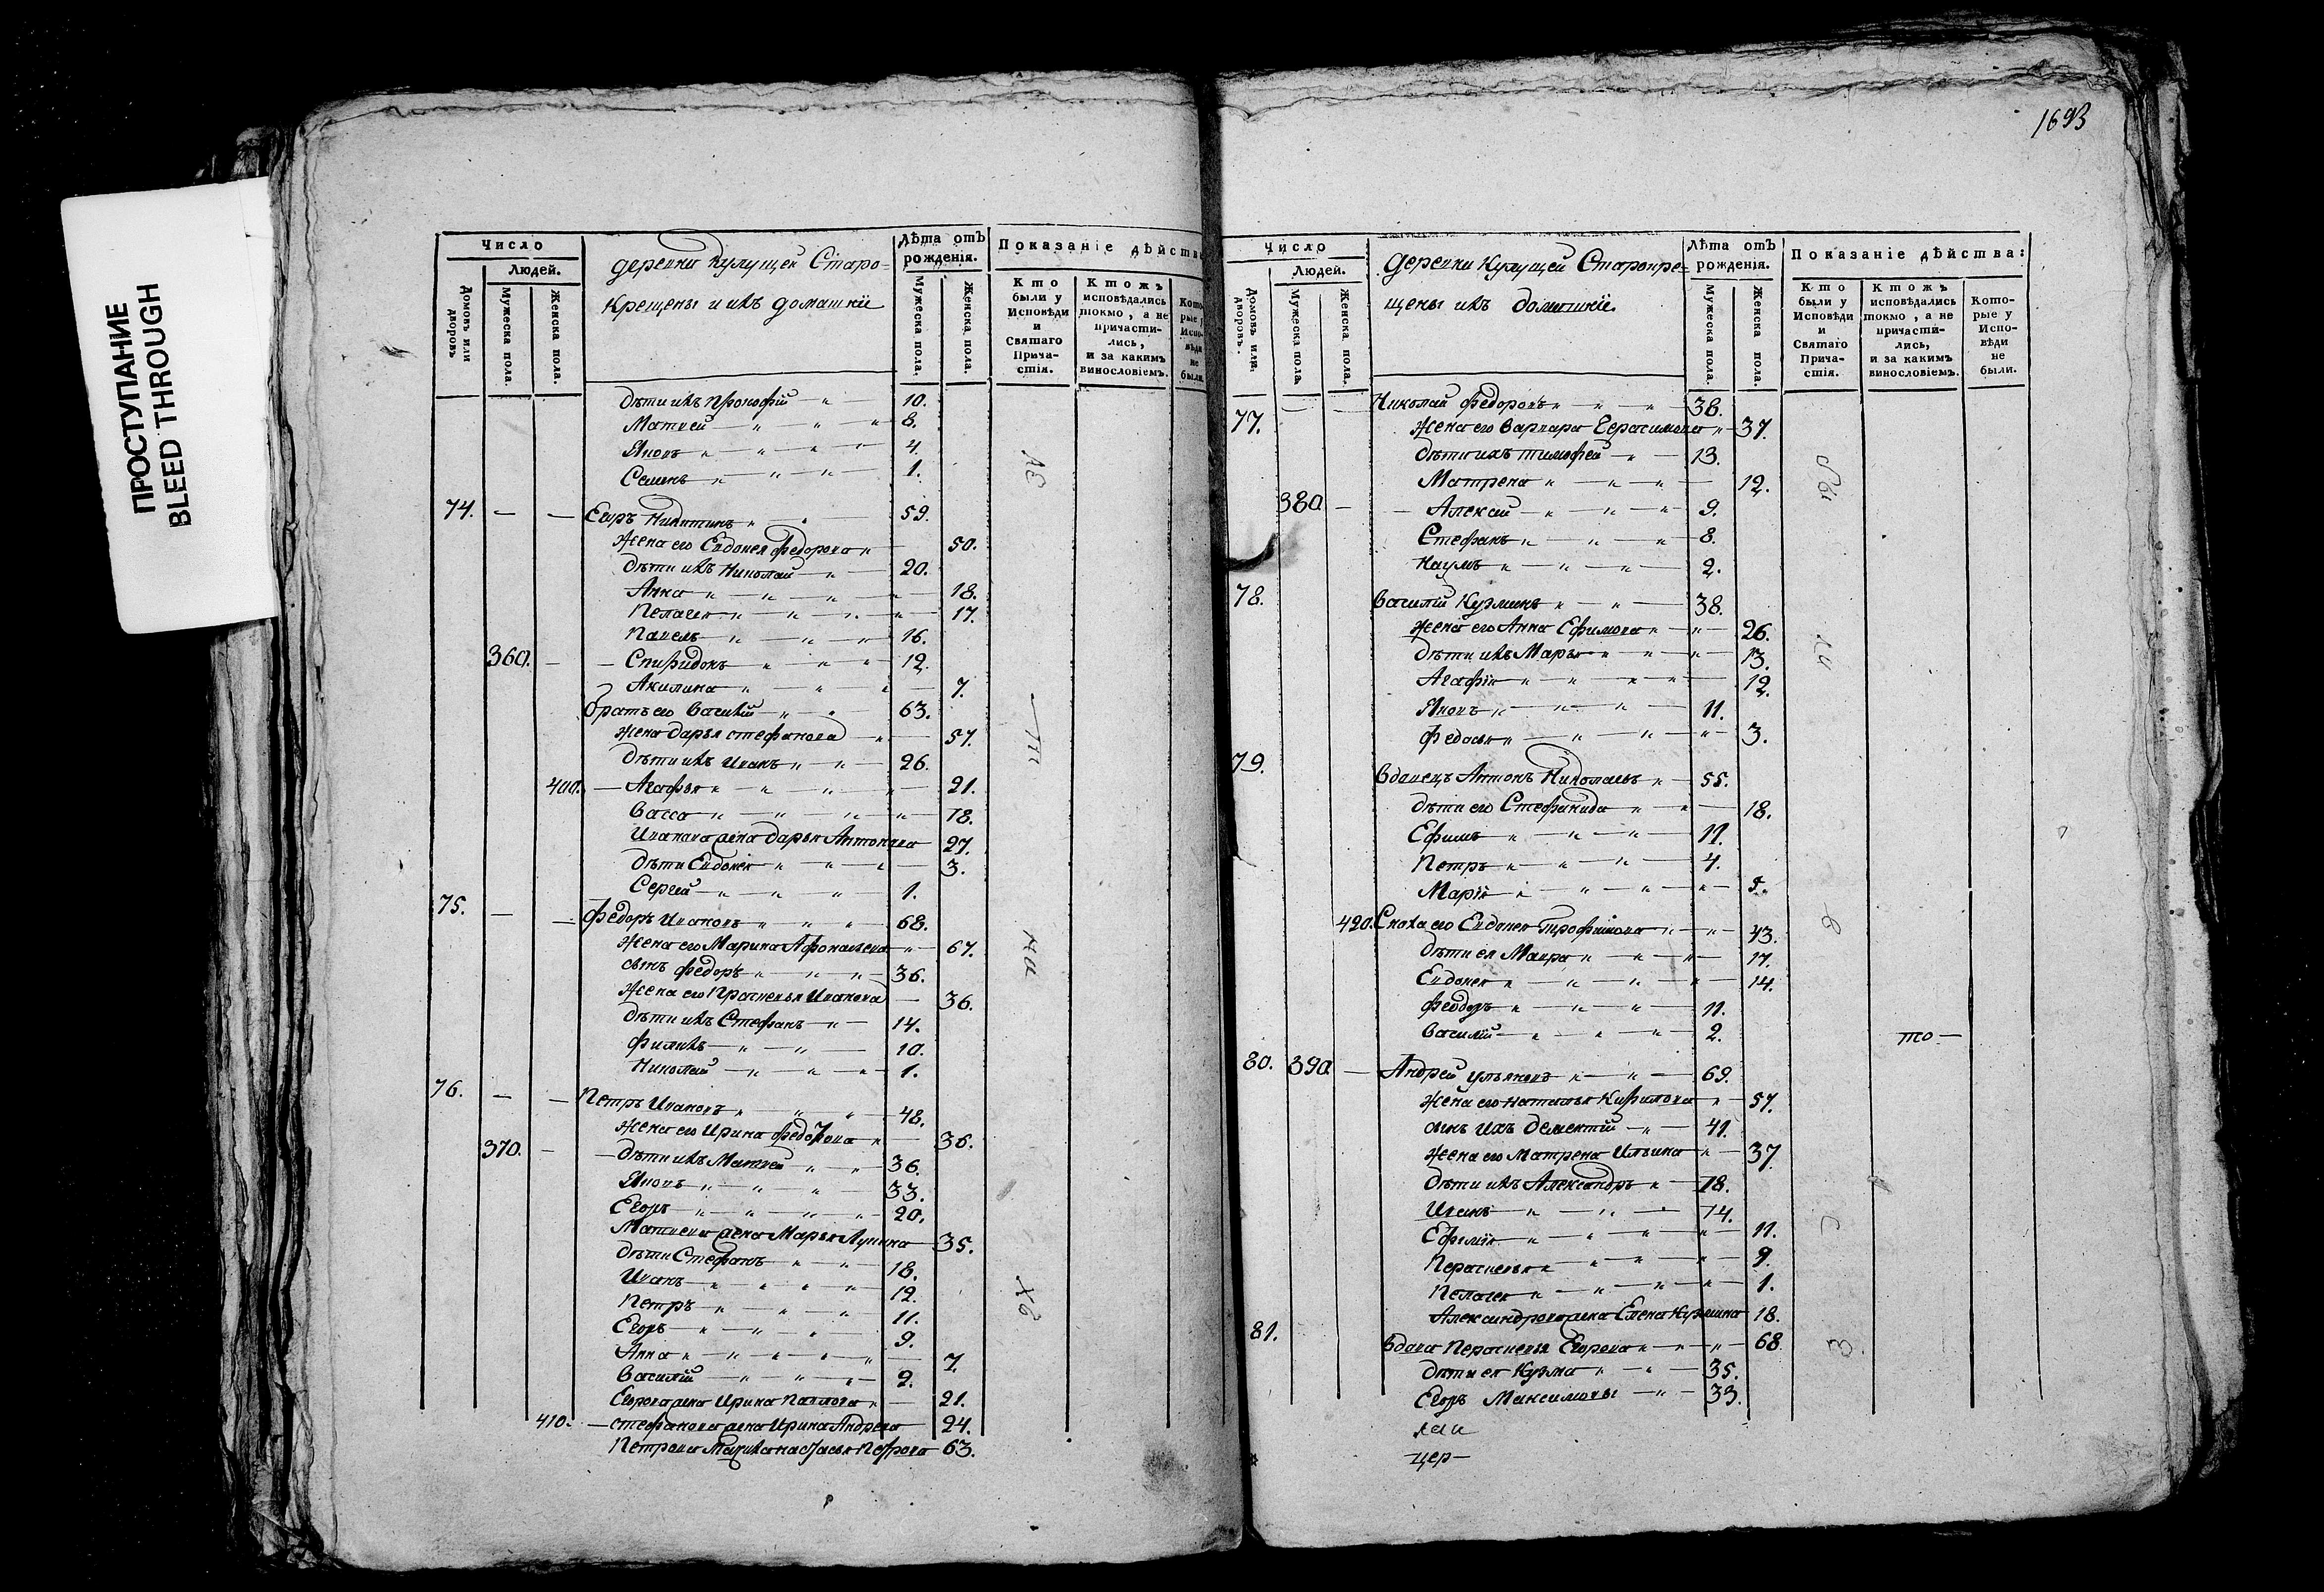 ПРОСТУПАНИЕ
BLEED THROUGH
Число
Людей.
Домовъ или дворовъ
Мужеска пола.
Женска пола.
деревни Кулущей Старо=
крещены и ихъ домашніе
Лѣта отъ рожденія.
Мужеска пола.
Женска пола.
Показаніе дѣйства
Кто были у Исповѣди и Святаго Прича-стія.
Ктожъ исповѣдались токмо, а не причасти-лись, и за какимъ винословіемъ.
Кото-рые у Испо-вѣди не были.
Дѣти ихъ Прокофій 10.
Матвей 8.
Яковъ 4.
Семенъ 1.
74. Егоръ Никитинъ 59.
Жена его Евдокея Федорова 50.
Дѣти ихъ Николай 20.
Анна 18.
Пелагея 17.
Павелъ 16.
360. Спиридонъ 12.
Акилина 7.
Братъ его Василій 63.
Жена Дарья Стефанова 57.
Дѣти ихъ Иванъ 26.
400. Агафья 21.
Васса 18.
Иванова жена Дарья Антонова 27.
Дѣти Евдокея 3.
Сергей 1.
75. Федоръ Ивановъ 68.
Жена его Марина Афонасьева 67.
сынъ Федоръ 36.
Жена его Прасковья Иванова 36.
Дѣти ихъ Стефанъ 14.
Филипъ 10.
Николай 1.
76. Петръ Ивановъ 48.
Жена его Ирина Федорова 36.
370. Дѣти ихъ Матвей 36.
Яковъ 33.
Егоръ 20.
Матвеева жена Марья Лупина 35.
Дѣти Стефанъ 18.
Иванъ 12.
Петръ 11.
Егоръ 9.
Анна 7.
Василій 2.
Егорова жена Ирина Павлова 21.
410. Стефанова жена Ирина Андрева 24.
Петрова Петрова 63.
1693
Число
Людей.
Домовъ или дворовъ.
Мужеска пола.
Женска пола.
деревни Кулущей Старокре=
щены ихъ домашніе.
Лѣта отъ рожденія.
Мужеска пола.
Женска пола.
Показаніе дѣйства:
Кто были у Исповѣди и Святаго Прича-стія.
Ктожъ исповѣдались токмо, а не причасти-лись, и за какимъ винословіемъ.
Кото-рые у Испо-вѣди не были.
77. Николай Федоровъ 38.
Жена его Варвара Герасимова 37.
Дѣти ихъ Тимофей 13.
Матрена 12.
380. Алексей 9.
Стефанъ 8.
Наумъ 2.
78. Василій Кузминъ 38.
Жена его Анна Ефимова 26.
Дѣти ихъ Марья 13.
Агафія 12.
Яковъ 11.
Федосья 3.
79. Вдовецъ Антонъ Николаевъ 55.
Дѣти его Стефанида 18.
Ефимъ 11.
Петръ 4.
Марія
420. Сноха его Евдокея Трофимова 43.
Дѣти ея Мавра 17.
Евдокея 14.
Феодоръ 11.
Василій 2.
то
80. 390. Андрей Ульяновъ 69.
Жена его Наталья Кирилова 57.
сынъ ихъ Дементій 41.
Жена его Матрена Ильина 37.
Дѣти ихъ Александръ 18.
Иванъ 14.
Ефимія 11.
Перасковья 9.
Пелагея 1.
Александрова жена Елена Кузмина 18.
81. Вдова Перасковья Егорова 68
Дѣти ея Кузма 35.
Егоръ Максимовы 33.
цер